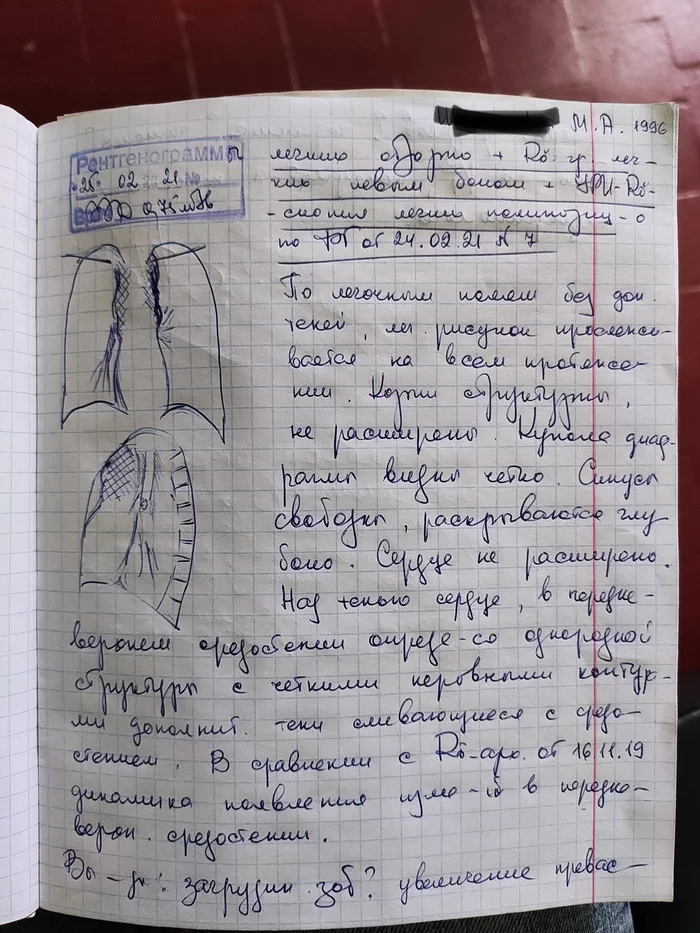 М.А. 1996
Рентгенограммы
25 02 21
0,75 мЗв
легких обзорно + Rö-гр. лег-
ких левым боком + УРИ-Rö-
-скопия легких полипозиц-о
по РТ от 24.02.21 № 7
По легочным полям без доп.
теней, лег. рисунок прослежи-
вается на всем протяже-
нии. Корни структурны,
не расширены. Купола диаф-
рагмы видны четко. Синусы
свободны, раскрываются глу
боко. Сердце не расширено.
Над тенью сердце, в передне-
верхнем средостении опреде-ся однородной
структуры с четкими неровными контур-
ми дополнит. тени сливающиеся с средо-
стением. В сравнении с Rö-арх. от 16.11.19
динамика появления изме-ий в передне-
верхн. средостении.
загрудин. зоб? увеличение превас-